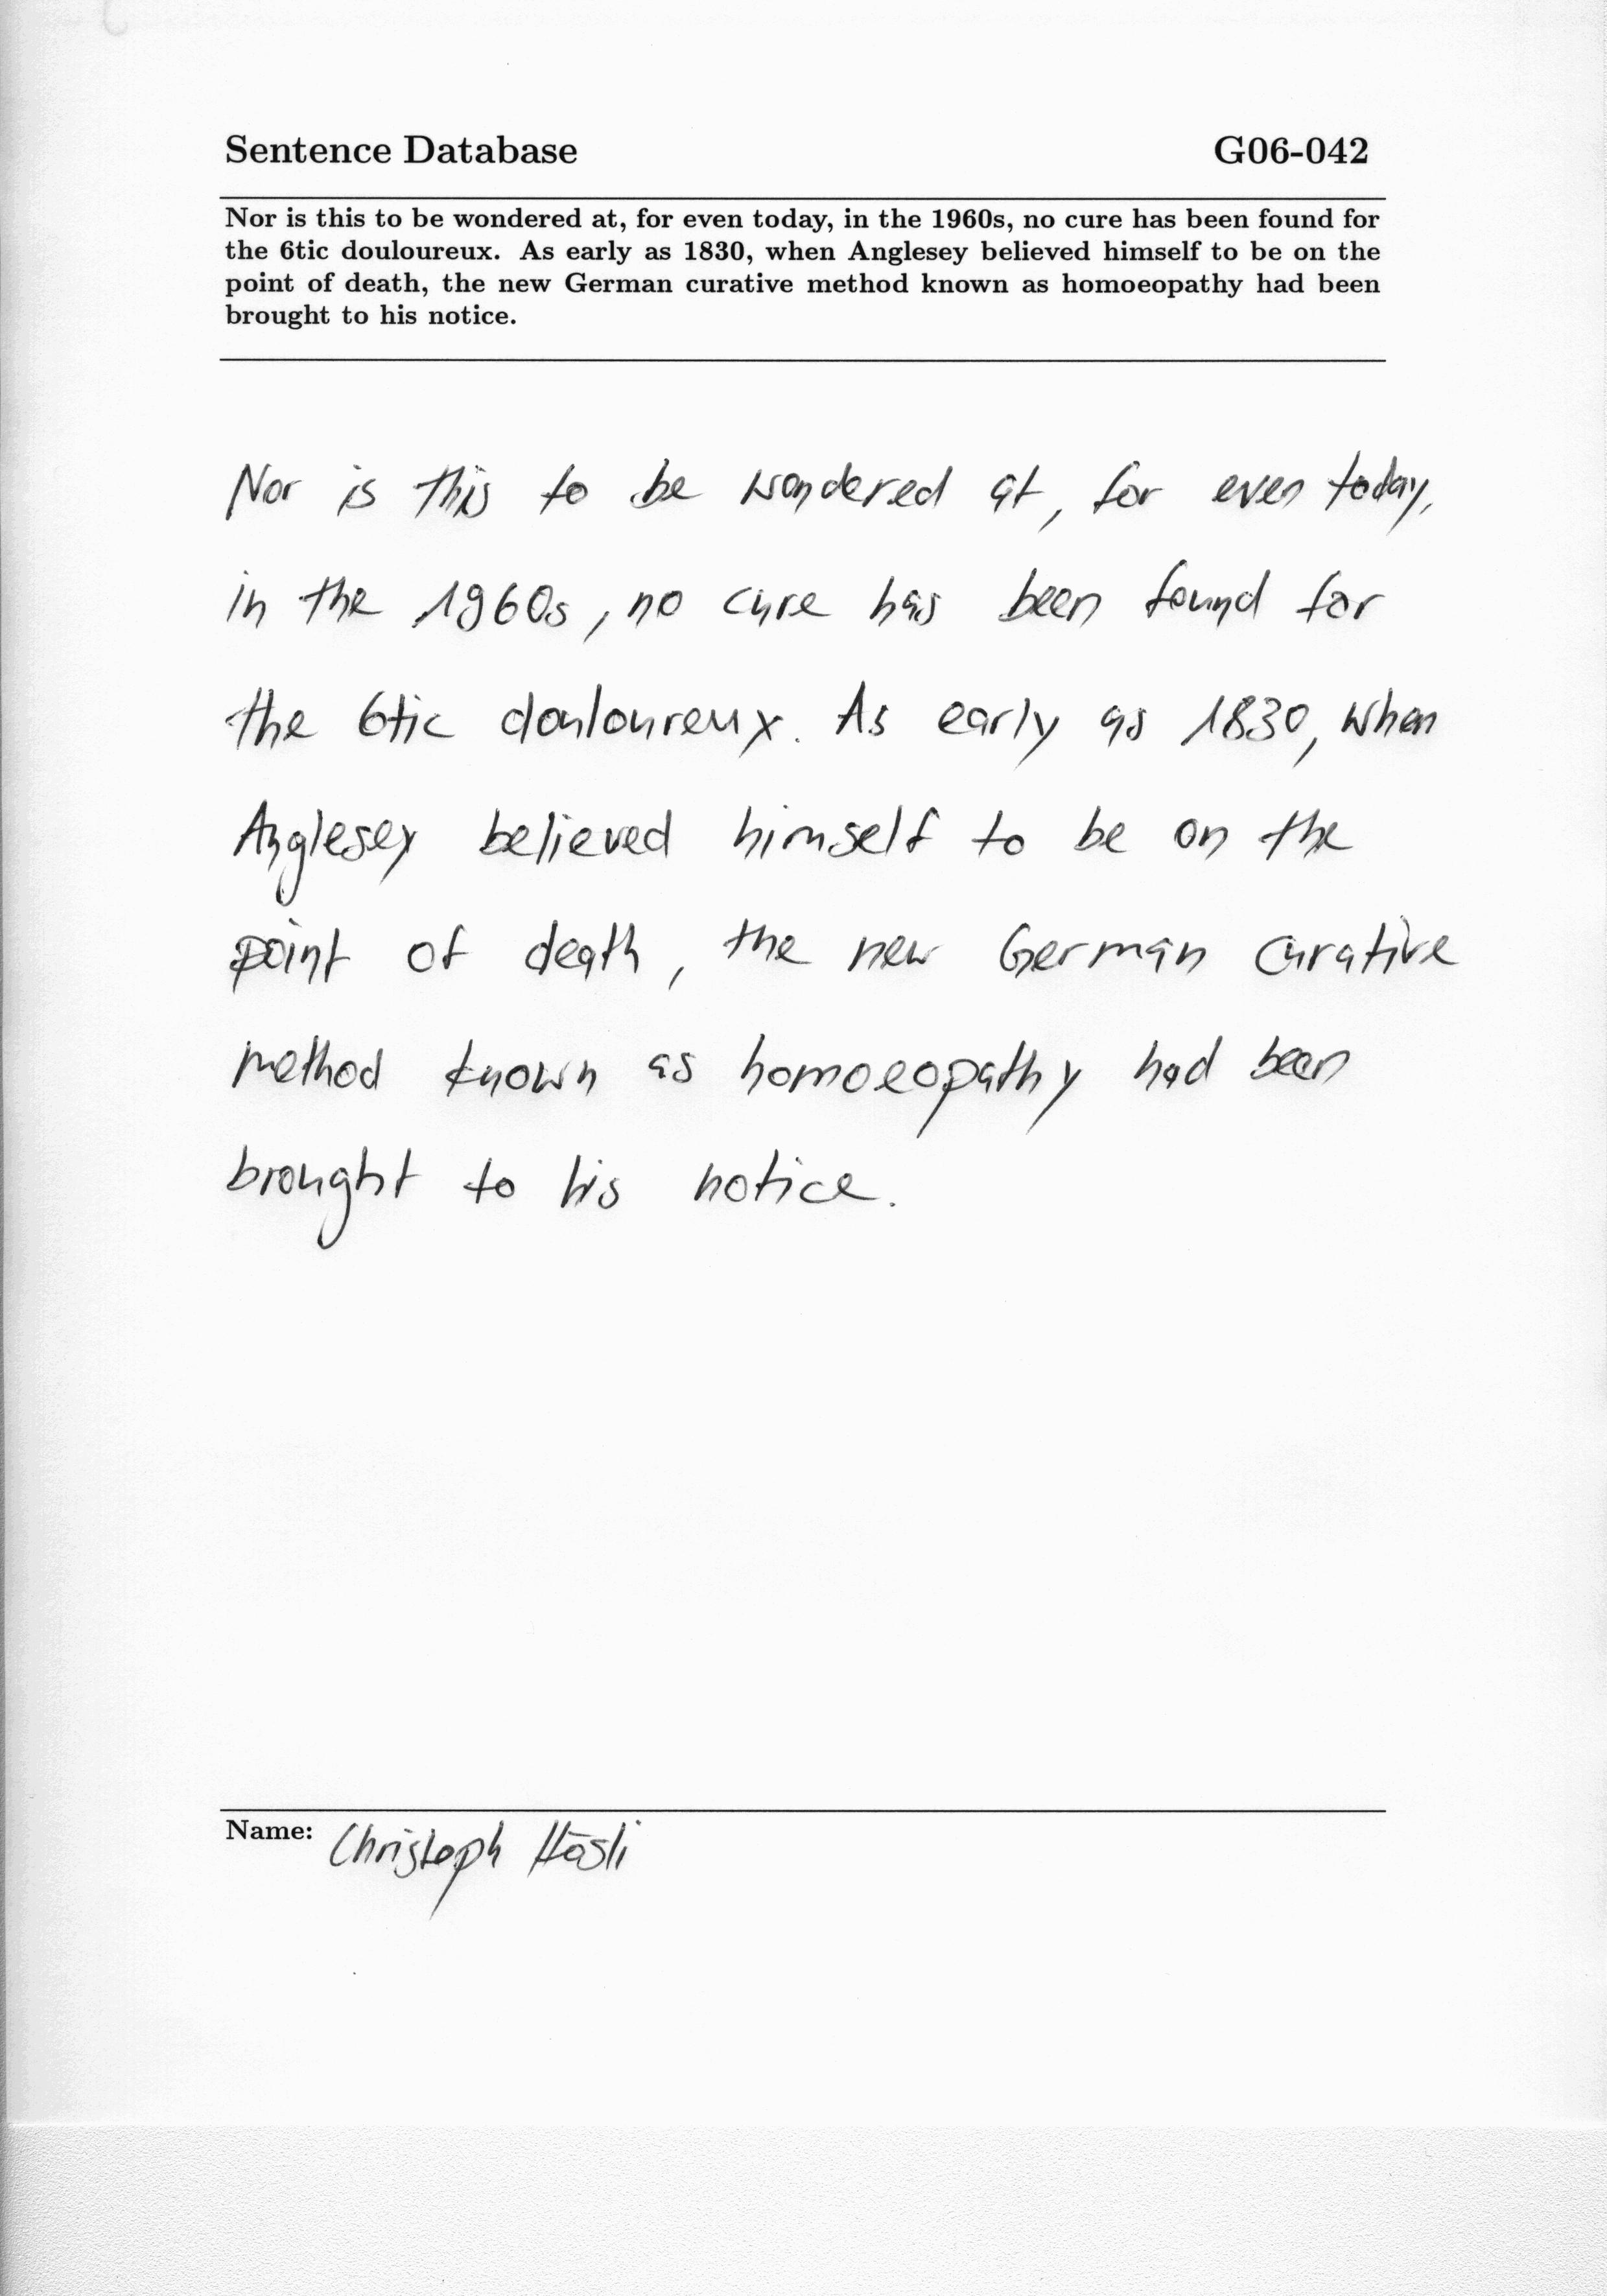 Sentence Database G06-042
Nor is this to be wondered at, for even today, in the 1960s, no cure has been found for
the 6tic douloureux. As early as 1830, when Anglesey believed himself to be on the
point of death, the new German curative method known as homoeopathy had been
brought to his notice.
Nor is this to be wondered at, for even today,
in the 1960s, no cure has been found for
the 6tic douloureux. As early as 1830, when
Anglesey believed himself to be on the
point of death, the new German curative
method known as homoeopathy had been
brought to his notice.
Name: Christoph Hösli